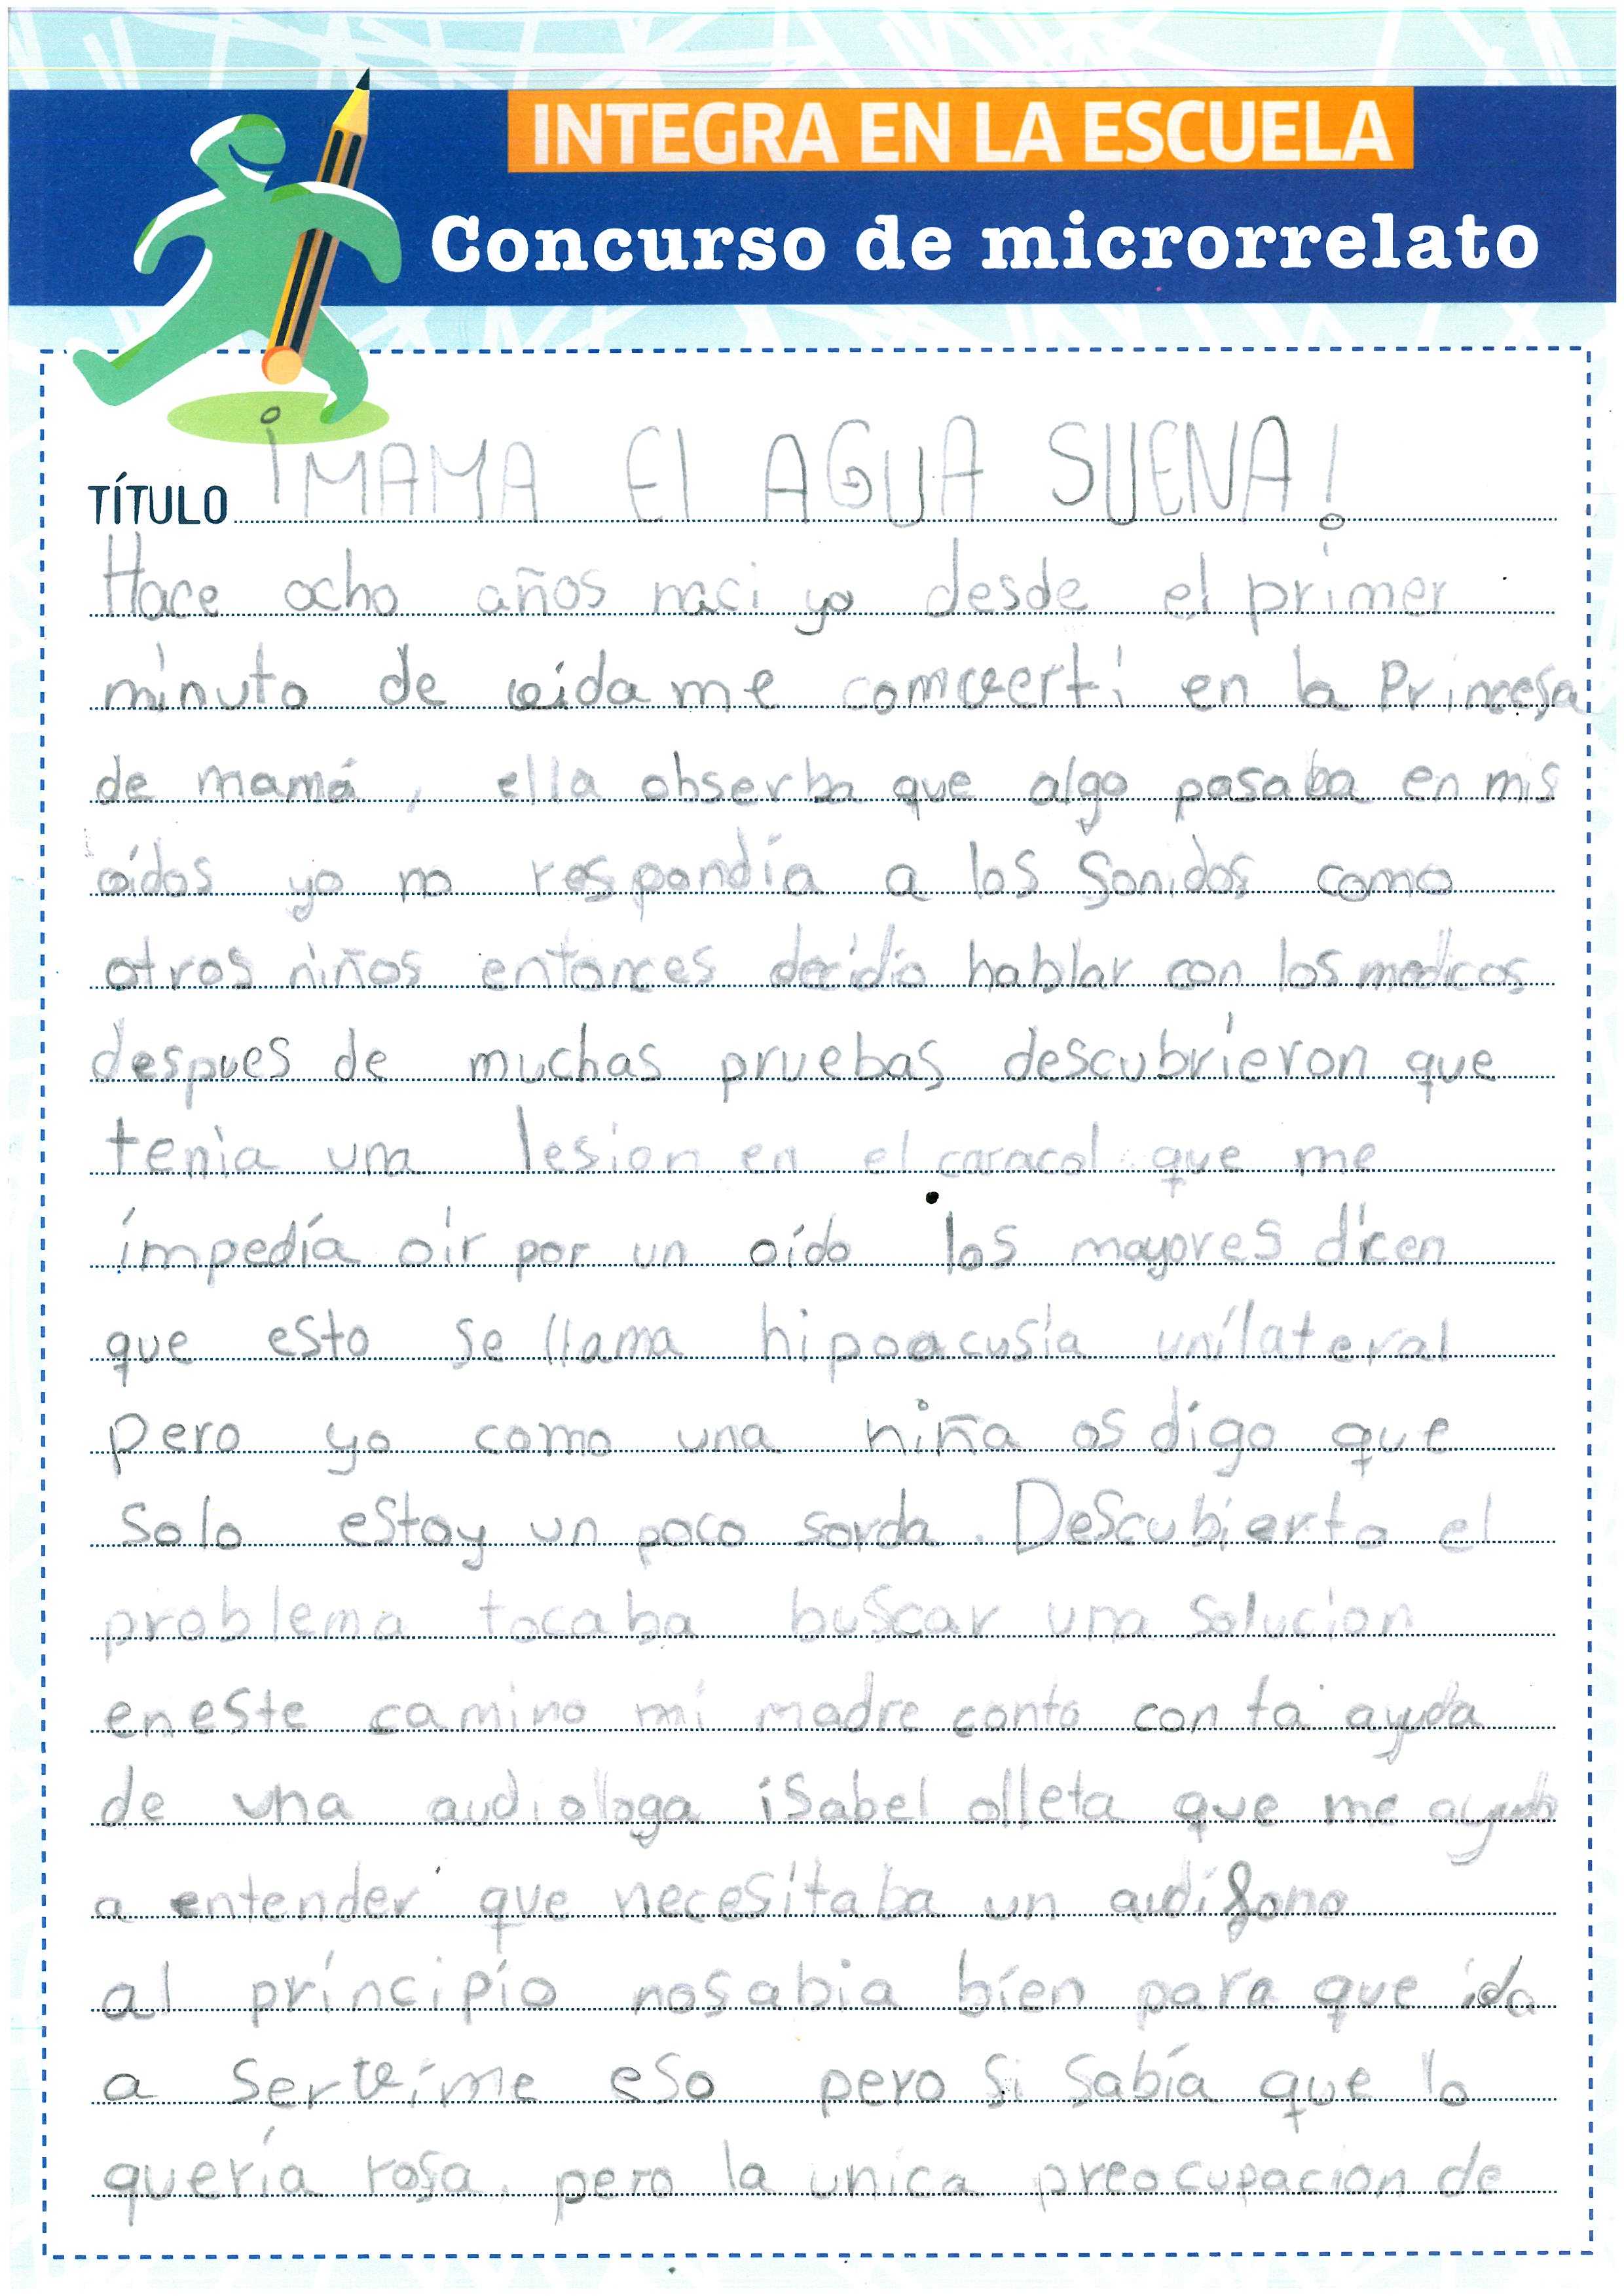 INTEGRA EN LA ESCUELA
Concurso de microrrelato
TÍTULO ¡MAMA El AGUA SUENA!
Hace ocho años naci yo desde el primer
minuto de vida me comverti en la Princesa
de mamá, ella obserba que algo pasaba en mis
oídos yo no respondía a los Sonidos como
otros niños entonces decidio hablar con los medicos
despues de muchas pruebas descubrieron que
tenia una lesion en el caracol que me
impedía oir por un oído los mayores dicen
que esto se llama hipoacusia unilateral
pero yo como una niña os digo que
Solo estoy un poco sorda. Descubierto el
problema tocaba buscar una Solucion
eneste camino mi madre conto con la ayuda
de una audiologa iSabel olleta que me ayudo
a entender que necesitaba un audifono
al principio nosabia bien para que iba
a servirme eso pero si sabía que lo
quería rosa. pero la unica preocupacion de